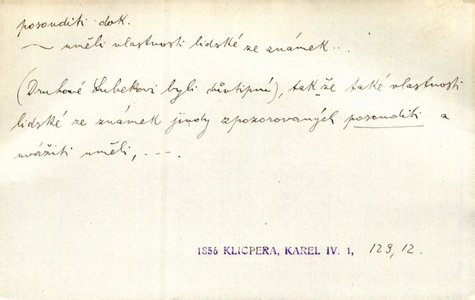 posouditi dok.
~ uměli vlastnosti lidské ze známek..
(Druhové Lubekovi byli důvtipné), takže také vlastnosti
lidské ze známek jindy zpozorovaných posouditi a
uvážiti uměli, ---.
1856 KLICPERA, KAREL IV. 1, 129, 12.